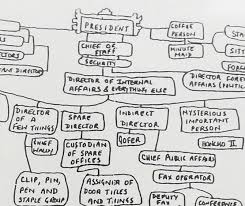 PRESIDENT
COFFEE
PERSON
CHIEF OF
STAFF
MINUTE
MAID
SECURITY
DIRECTOR OF INTERNAL
AFFAIRS & EVERYTHING ELSE
DIRECTOR
OF A
FEW THINGS
SPARE
DIRECTOR
INDIRECT
DIRECTOR
MYSTERIOUS
IMPORTANT
PERSON
CUSTODIAN
OF SPARE
OFFICES
GOFER
HONCHO II
CHIEF PUBLIC AFFAIRS
CLIP, PIN,
PEN AND
STAPLE GROUP
ASSIGNER OF
DOOR TILES
AND THINGS
FAX OPERATOR
DEPUTY
FAX
CONFERENCE